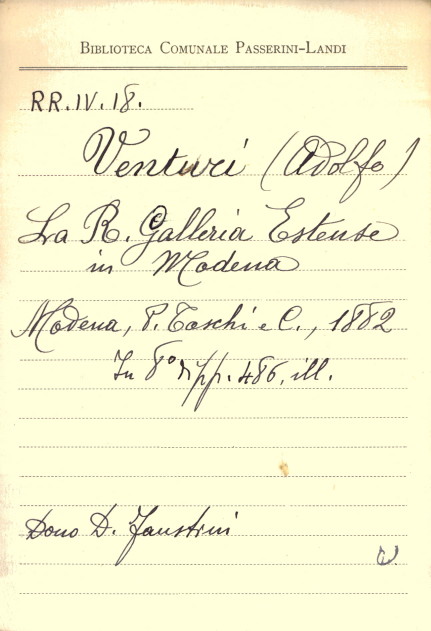 BIBLIOTECA COMUNALE PASSERINI-LANDI
RR.IV.18.
Venturi (Adolfo)
La R. Galleria Estense
in Modena
Modena, P. Toschi e C., 1882
In 8° di pp. 486, ill.
Dono D. Faustini